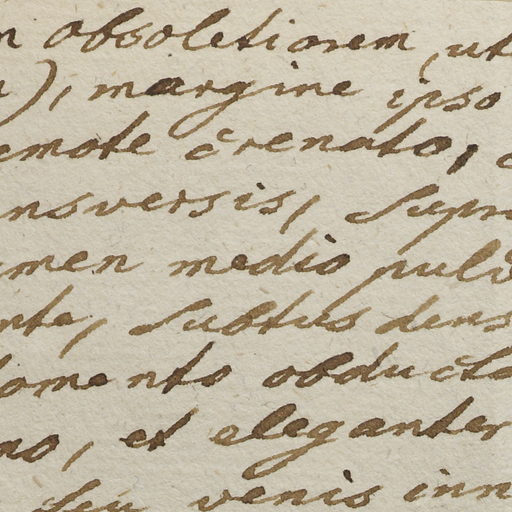 m obsoletiorem, ut
), margine ipso
emote crenato,
ansversis, Supra
men medio pulv
nte, Subtus dens
tomento obducta
no, et eleganter
Seu venis inn